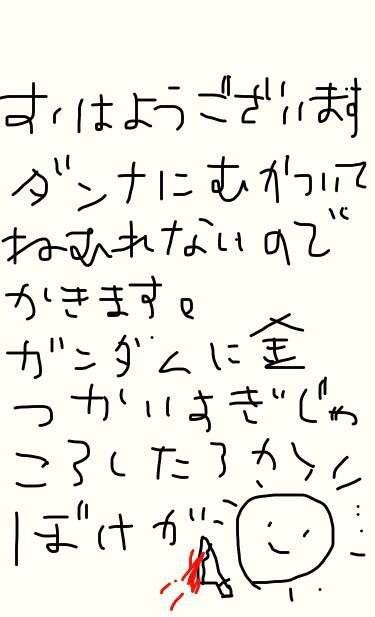 おはようございます
ダンナにむかついて
ねむれないので
かきます。
ガンダムに金
つかいすぎじゃ
ころしたろか
ぼけが